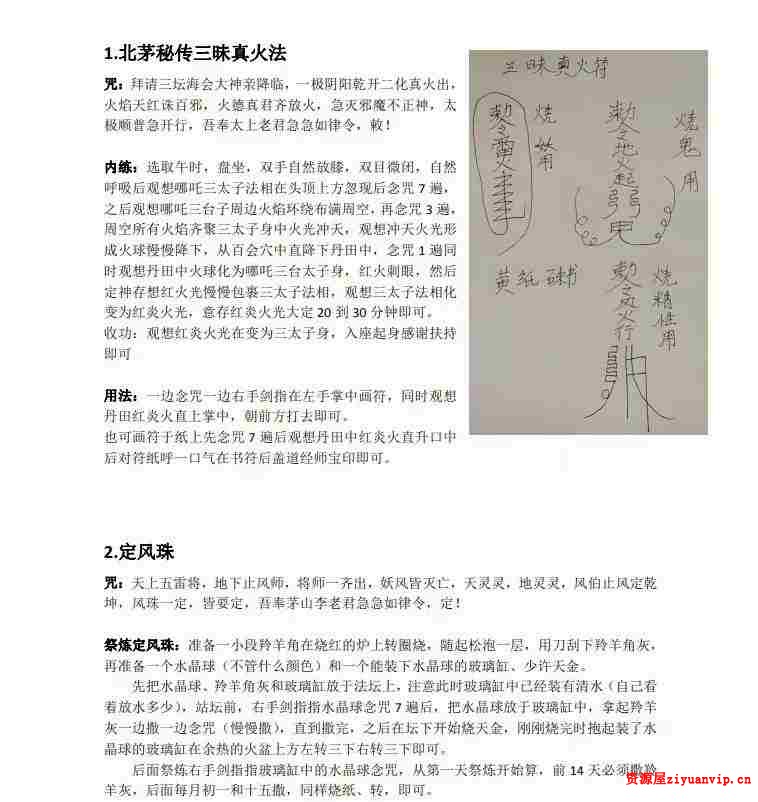 1.北茅秘传三昧真火法
咒：拜请三坛海会大神亲降临，一极阴阳乾开二化真火出，
火焰天红诛百邪，火德真君齐放火，急灭邪魔不正神，太
极顺普急开行，吾奉太上老君急急如律令，敕！
内练：选取午时，盘坐，双手自然放膝，双目微闭，自然
呼吸后观想哪吒三太子法相在头顶上方忽现后念咒 7 遍，
之后观想哪吒三台子周边火焰环绕布满周空，再念咒 3 遍，
周空所有火焰齐聚三太子身中火光冲天，观想冲天火光形
成火球慢慢降下，从百会穴中直降下丹田中，念咒 1 遍同
时观想丹田中火球化为哪吒三台太子身，红火刺眼，然后
定神存想红火光慢慢包裹三太子法相，观想三太子法相化
变为红炎火光，意存红炎火光大定 20 到 30 分钟即可。
收功：观想红炎火光在变为三太子身，入座起身感谢扶持
即可
用法：一边念咒一边右手剑指在左手掌中画符，同时观想
丹田红炎火直上掌中，朝前方打去即可。
也可画符于纸上先念咒 7 遍后观想丹田中红炎火直升口中
后对符纸呼一口气在书符后盖道经师宝印即可。
三昧真火符
烧妖用
敕令地火起
烧鬼用
黄纸
书
火行
烧精怪用
2.定风珠
咒：天上五雷将，地下止风师，将师一齐出，妖风皆灭亡，天灵灵，地灵灵，风伯止风定乾
坤，风珠一定，皆要定，吾奉茅山李老君急急如律令，定！
祭炼定风珠：准备一小段羚羊角在烧红的炉上转圈烧，随起松泡一层，用刀刮下羚羊角灰，
再准备一个水晶球（不管什么颜色）和一个能装下水晶球的玻璃缸、少许天金。
先把水晶球、羚羊角灰和玻璃缸放于法坛上，注意此时玻璃缸中已经装有清水（自己看
着放水多少），站坛前，右手剑指指水晶球念咒 7 遍后，把水晶球放于玻璃缸中，拿起羚羊
灰一边撒一边念咒（慢慢撒），直到撒完，之后在坛下开始烧天金，刚刚烧完时抱起装了水
晶球的玻璃缸在余热的火盆上方左转三下右转三下即可。
后面祭炼右手剑指指玻璃缸中的水晶球念咒，从第一天祭炼开始算，前 14 天必须撒羚
羊灰，后面每月初一和十五撒，同样烧纸、转，即可。
资源屋ziyuanvip.cn